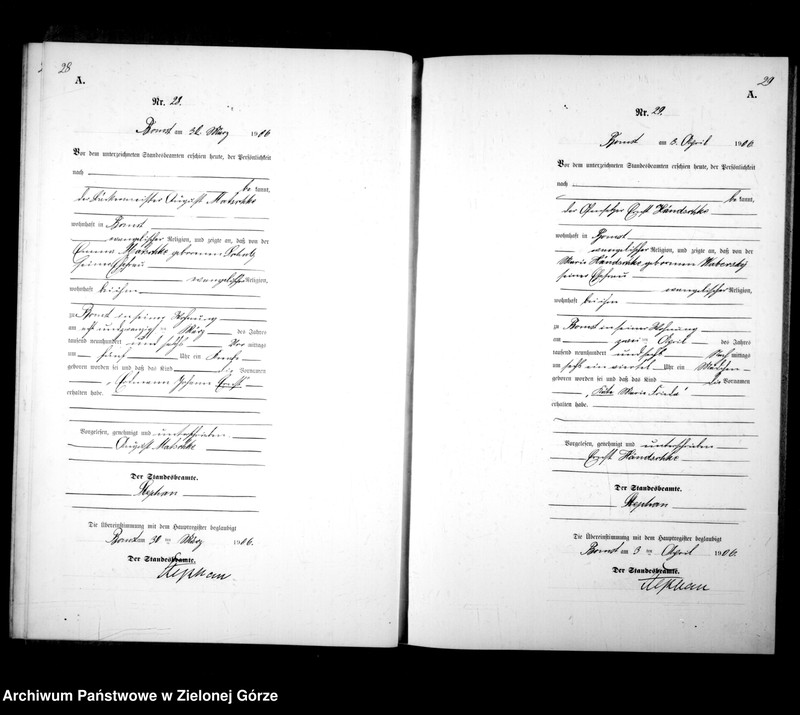 28
A.
Nr. 28.
Bomst am 30. März 1906
Vor dem unterzeichneten Standesbeamten erschien heute, der Persönlichkeit
nach
be kannt,
der Bäckermeister August Matschke
wohnhaft in Bomst
evangelischer Religion, und zeigte an, daß von der
Emma Matschke geborenen
seiner Ehefrau
evangelischer Religion,
wohnhaft bei ihm
zu Bomst in seiner Wohnung
am acht und zwanzigsten März des Jahres
tausend neunhundert und sechs Vor mittags
um fünf Uhr ein Knabe
geboren worden sei und daß das Kind die Vornamen
Johann Ernst
erhalten habe.
Vorgelesen, genehmigt und unterschrieben
August Matschke
Der Standesbeamte.
Stephan
Die Übereinstimmung mit dem Hauptregister beglaubigt
Bomst am 30 ten März 1906.
Der Standesbeamte.
Stephan
29
A.
Nr. 29.
Bomst am 3. April 1906
Vor dem unterzeichneten Standesbeamten erschien heute, der Persönlichkeit
nach
be kannt,
der Ofensetzer Ernst Händschke
wohnhaft in Bomst
evangelischer Religion, und zeigte an, daß von der
Marie Händschke geborenen
seiner Ehefrau
evangelischer Religion,
wohnhaft bei ihm
zu Bomst in seiner Wohnung
am zwei April des Jahres
tausend neunhundert und sechs Nach mittags
um sechs ein viertel Uhr ein Mädchen
geboren worden sei und daß das Kind die Vornamen
Marie Frieda
erhalten habe.
Vorgelesen, genehmigt und unterschrieben
Ernst Händschke
Der Standesbeamte.
Stephan
Die Übereinstimmung mit dem Hauptregister beglaubigt
Bomst am 3 ten April 1906.
Der Standesbeamte.
Stephan
Archiwum Państwowe w Zielonej Górze